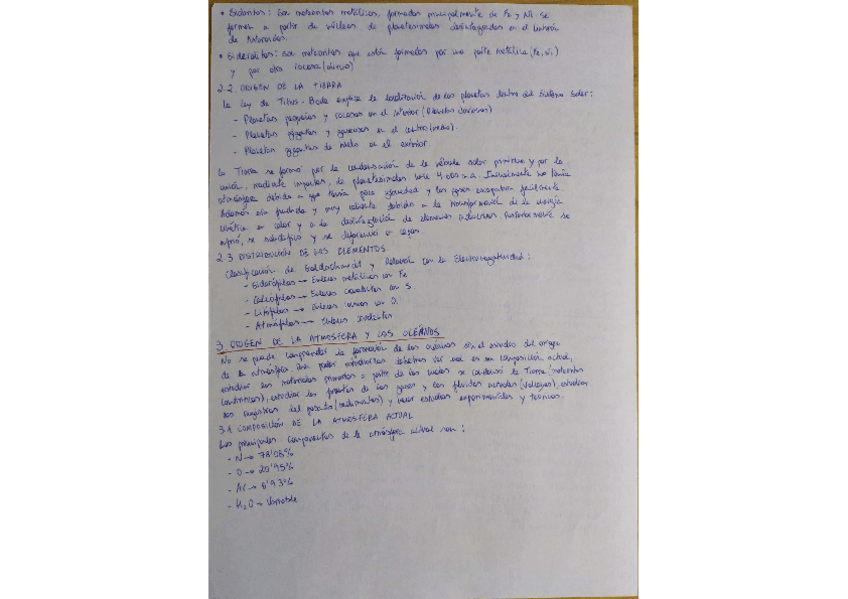 • Sideritos: Son meteoritos metálicos, formados principalmente de Fe y Ni. Se
forman a partir de núcleos de planetesimales desintegrados en el cinturón
de Asteroides.
• Siderolitos: Son meteoritos que están formados por una parte metálica (Fe, Ni)
y por otra rocosa (olivino)
2.2. ORIGEN DE LA TIERRA
La Ley de Titius-Bode explica la localización de los planetas dentro del Sistema Solar:
- Planetas pequeños y rocosos en el interior (Planetas
- Planetas gigantes y gaseosos en el centro (medio).
- Planetas gigantes de hielo en el exterior.
La Tierra se formó por la condensación de la nébula solar primitiva y por la
unión, mediante impactos, de planetesimales hace 4.000 m.a. Inicialmente no tenía
atmósfera debido a que tenía poca gravedad y los gases escapaban fácilmente.
Además era fundida y muy caliente debido a la transformación de la energía
cinética en calor y a la desintegración de elementos radiactivos. Posteriormente se
enfrió, se solidificó y se diferenció en capas.
2.3 DISTRIBUCIÓN DE LOS ELEMENTOS
Clasificación de Goldschmidt y Relación con la Electronegatividad:
- Siderófilos → Enlaces metálicos con Fe
- Calcófilos → Enlaces covalentes con S.
- Litófilos → Enlaces iónicos con O.
- Atmófilos → Enlaces
3 ORIGEN DE LA ATMOSFERA Y LOS OCÉANOS
No se puede comprender la formación de los océanos sin el estudio del origen
de la atmósfera. Para poder estudiarlas debemos ver cual es su composición actual,
estudiar los materiales primarios a partir de los cuales se condensó la Tierra (meteoritos
condríticos), estudiar las fuentes de los gases y los fluidos actuales (volcanes), estudiar
los registros del pasado (sedimentos) y hacer estudios experimentales y teóricos.
3.1 COMPOSICIÓN DE LA ATMÓSFERA ACTUAL
Los principales componentes de la atmósfera actual son:
- N → 78'08%
- O → 20'95%
- Ar → 0'93%
- H₂O → Variable